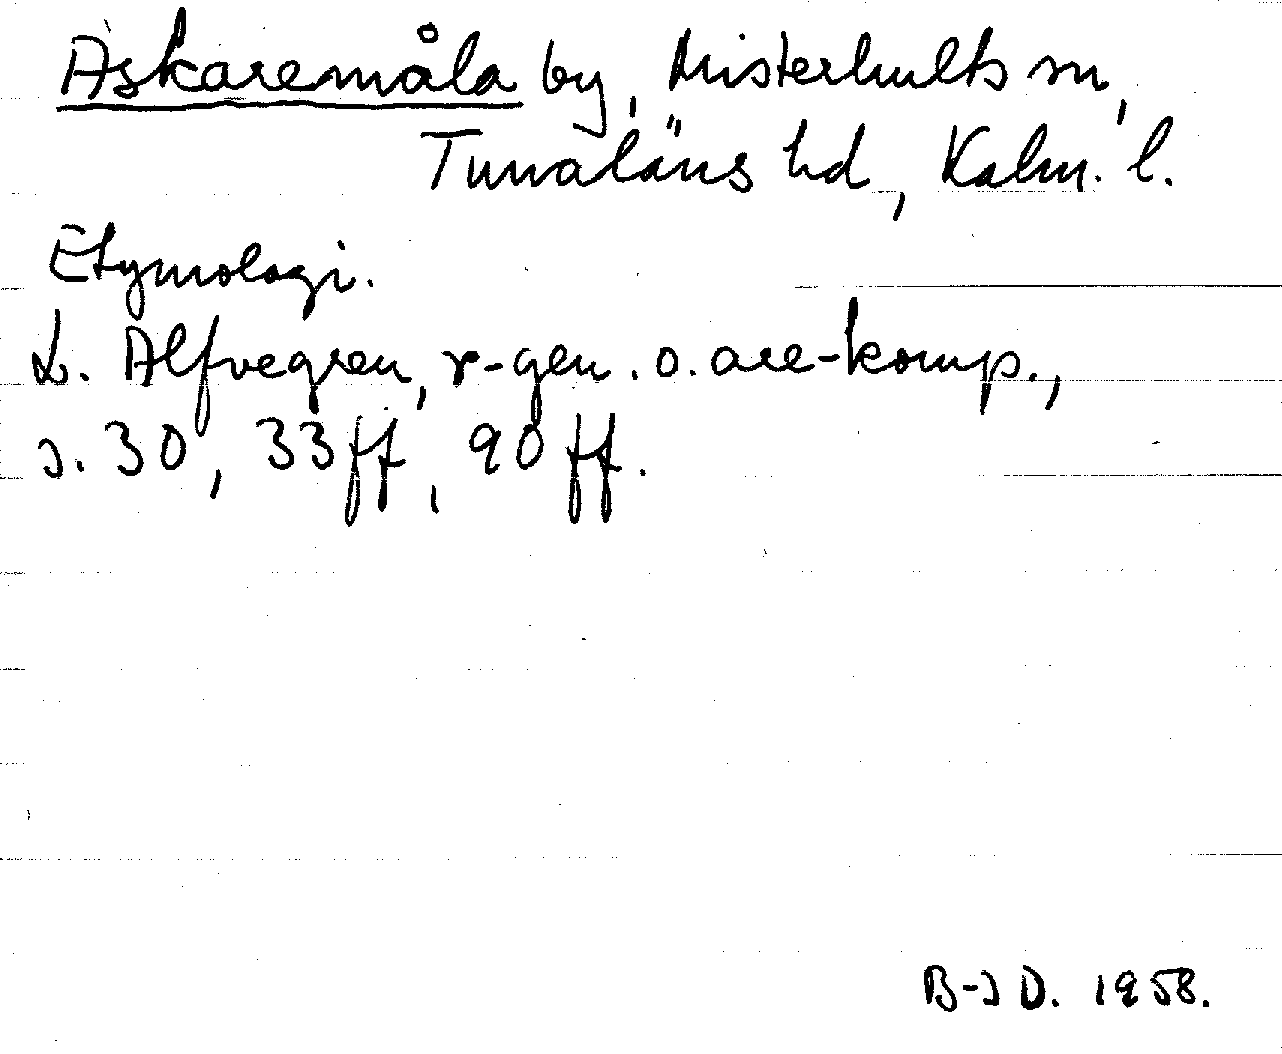 Askaremåla by, Misterhults sn,
Tunaläns hd, Kalm. l.
Etymologi.
L. Alfvegren, r-gen. o. are-komp.,
s. 30, 33ff, 90ff.
B-S D. 1958.